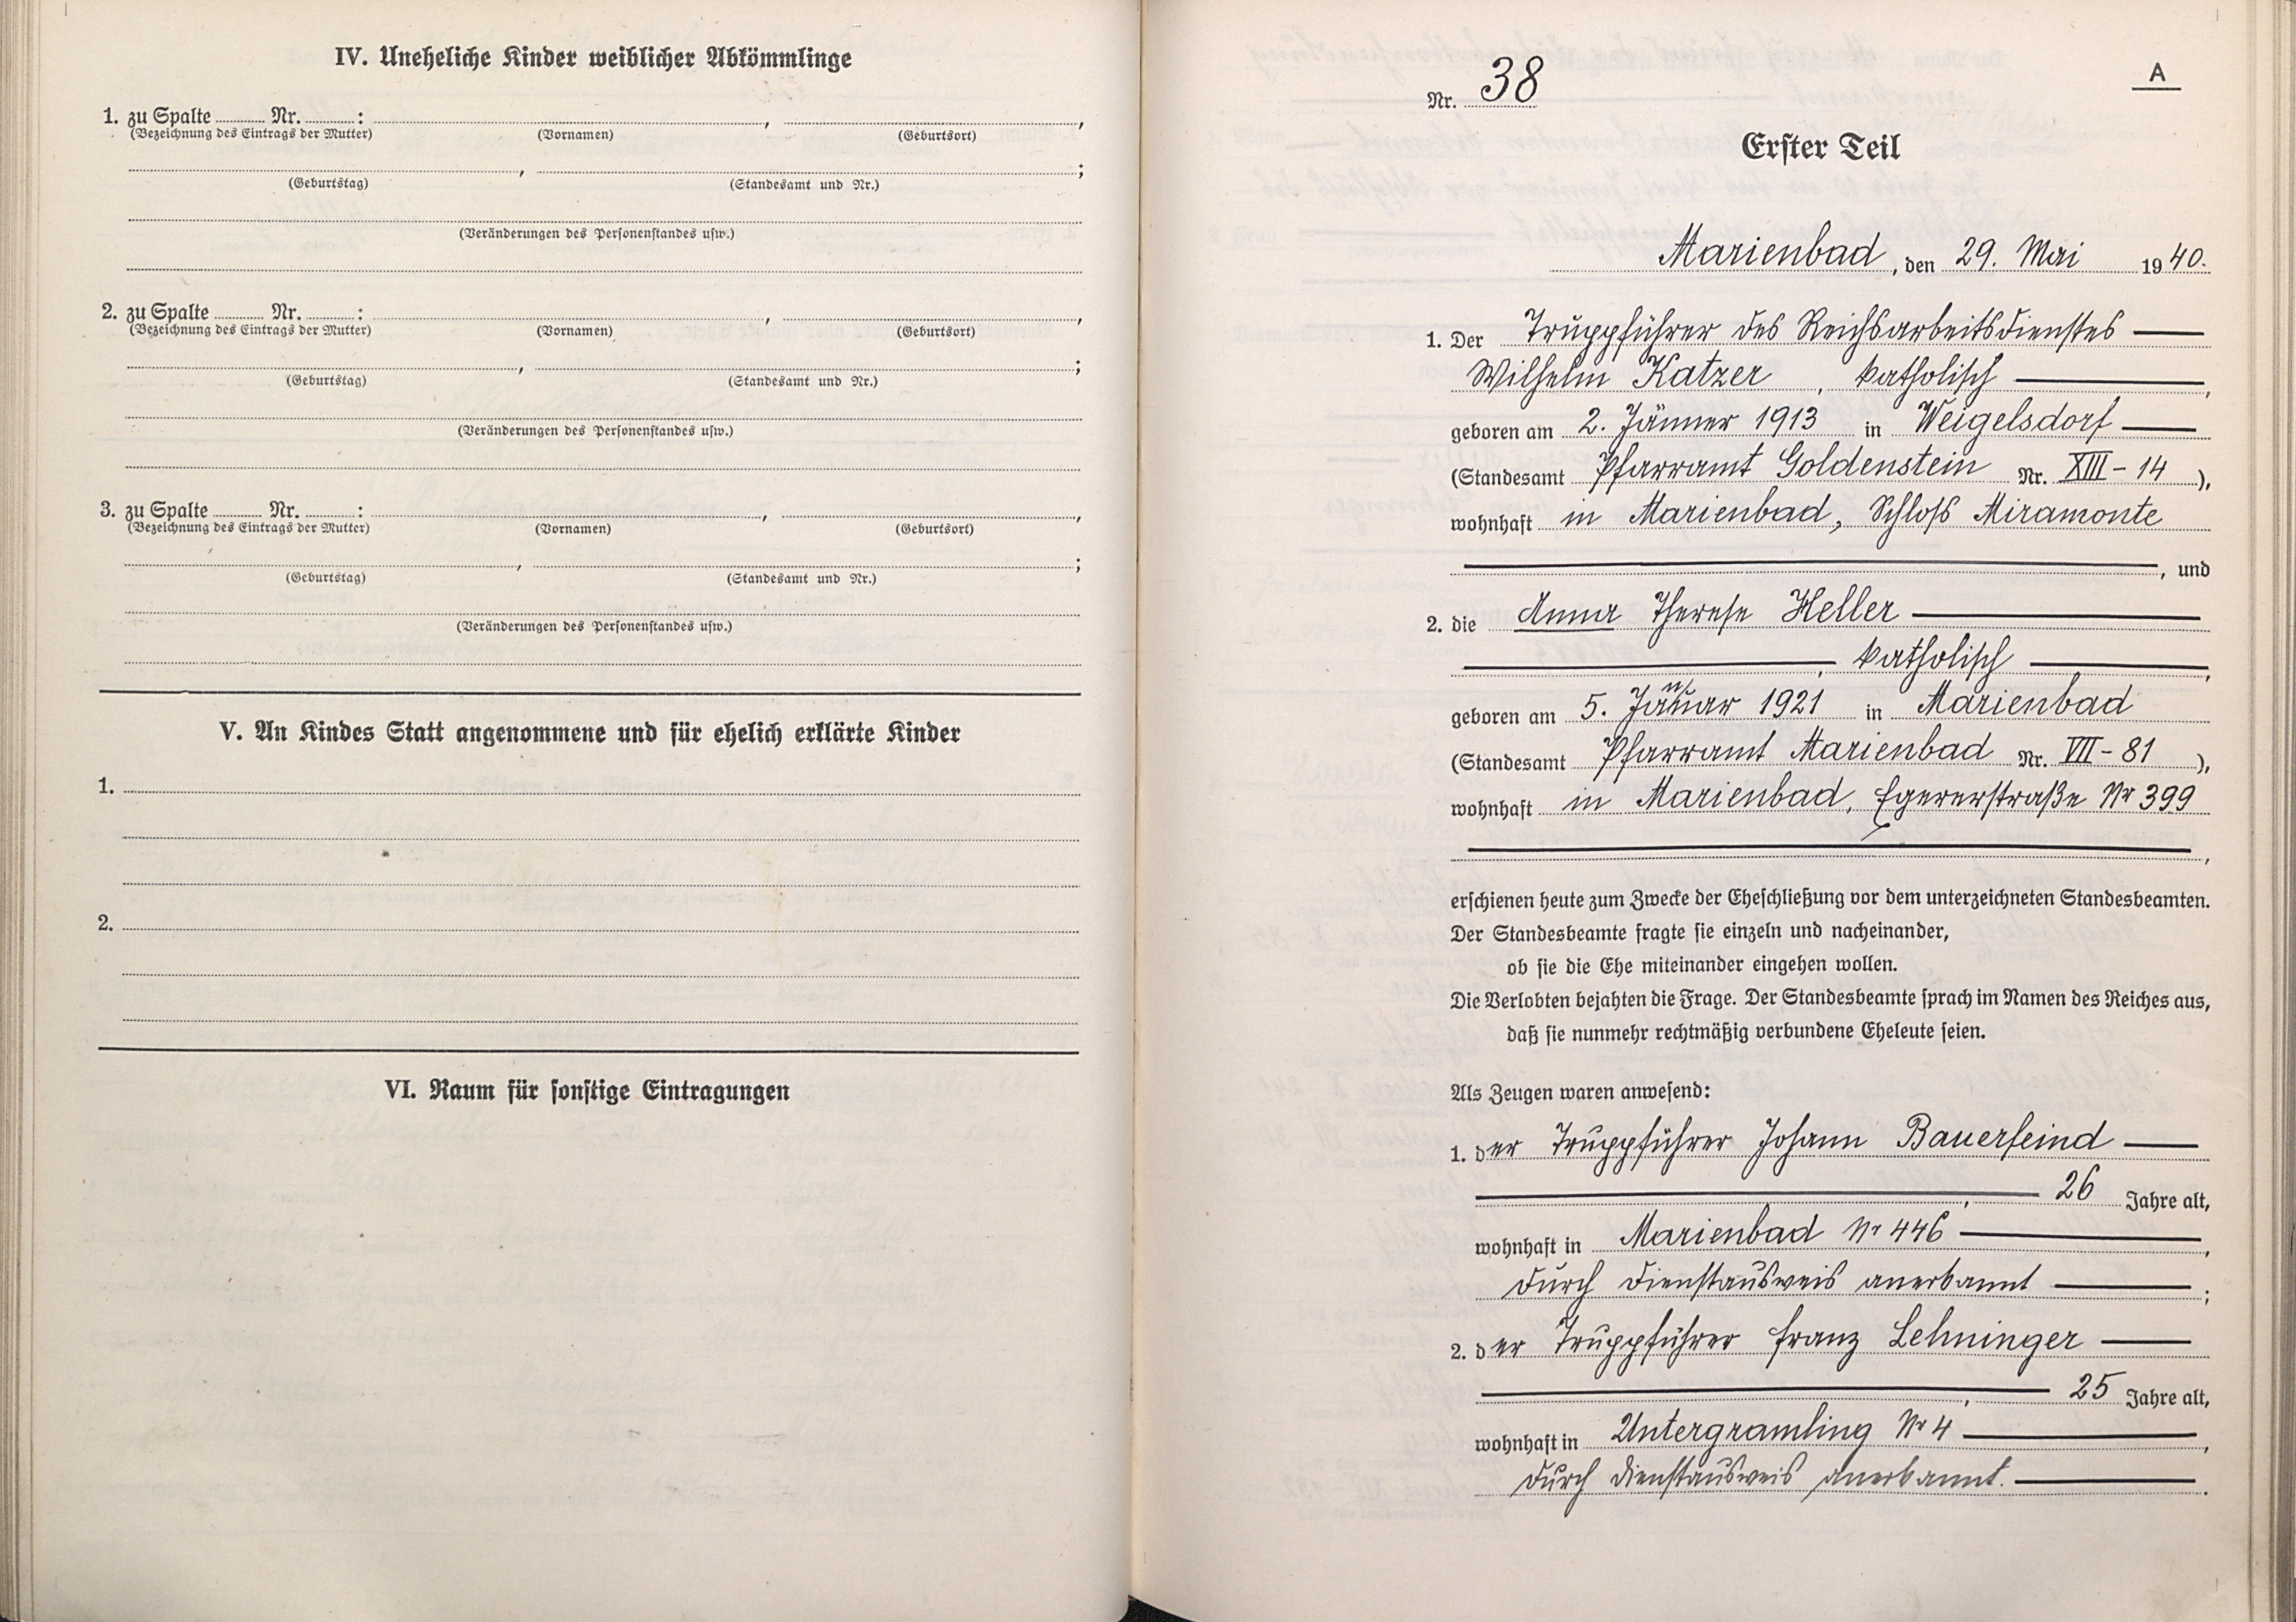 IV. Uneheliche Kinder weiblicher Abkömmlinge
1. zu Spalte Nr. : , ,
(Bezeichnung des Eintrags der Mutter) (Vornamen) (Geburtsort)
, ;
(Geburtstag) (Standesamt und Nr.)
(Veränderungen des Personenstandes usw.)
2. zu Spalte Nr. : , ,
(Bezeichnung des Eintrags der Mutter) (Vornamen) (Geburtsort)
, ;
(Geburtstag) (Standesamt und Nr.)
(Veränderungen des Personenstandes usw.)
3. zu Spalte Nr. : , ,
(Bezeichnung des Eintrags der Mutter) (Vornamen) (Geburtsort)
, ;
(Geburtstag) (Standesamt und Nr.)
(Veränderungen des Personenstandes usw.)
V. An Kindes Statt angenommene und für ehelich erklärte Kinder
1.
2.
VI. Raum für sonstige Eintragungen
A
Nr. 38
Erster Teil
Marienbad, den 29. Mai 1940.
1. Der Truppführer des Reichsarbeitsdienstes
Wilhelm Katzer, katholisch,
geboren am 2. Jänner 1913 in Weigelsdorf
(Standesamt Pfarramt Goldenstein Nr. XIII - 14),
wohnhaft in Marienbad, Schloß Miramonte
, und
2. die Anna Therese Heller
, katholisch,
geboren am 5. Januar 1921 in Marienbad
(Standesamt Pfarramt Marienbad Nr. VII - 81),
wohnhaft in Marienbad, Egererstraße Nr 399
,
erschienen heute zum Zwecke der Eheschließung vor dem unterzeichneten Standesbeamten.
Der Standesbeamte fragte sie einzeln und nacheinander,
ob sie die Ehe miteinander eingehen wollen.
Die Verlobten bejahten die Frage. Der Standesbeamte sprach im Namen des Reiches aus,
daß sie nunmehr rechtmäßig verbundene Eheleute seien.
Als Zeugen waren anwesend:
1. der Truppführer Johann Bauerfeind
, 26 Jahre alt,
wohnhaft in Marienbad Nr 446,
durch Dienstausweis anerkannt;
2. der Truppführer Franz Lehninger
, 25 Jahre alt,
wohnhaft in Untergramling Nr 4,
durch Dienstausweis anerkannt.